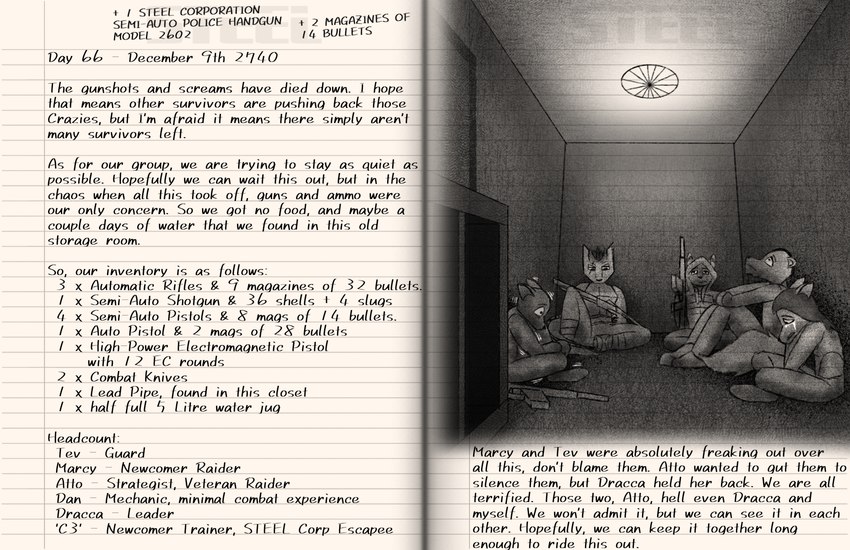 STEEL
+ 1 STEEL CORPORATION
SEMI-AUTO POLICE HANDGUN
MODEL 2602
+ 2 MAGAZINES OF
14 BULLETS
Day 66 - December 9th 2740
The gunshots and screams have died down. I hope
that means other survivors are pushing back those
Crazies, but I'm afraid it means there simply aren't
many survivors left.
As for our group, we are trying to stay as quiet as
possible. Hopefully we can wait this out, but in the
chaos when all this took off, guns and ammo were
our only concern. So we got no food, and maybe a
couple days of water that we found in this old
storage room.
So, our inventory is as follows:
3 x Automatic Rifles & 9 magazines of 32 bullets.
1 x Semi-Auto Shotgun & 36 shells + 4 slugs
4 x Semi-Auto Pistols & 8 mags of 14 bullets.
1 x Auto Pistol & 2 mags of 28 bullets
1 x High-Power Electromagnetic Pistol
with 12 EC rounds
2 x Combat Knives
1 x Lead Pipe, found in this closet
1 x half full 5 Litre water jug
Headcount:
Tev - Guard
Marcy - Newcomer Raider
Atto - Strategist, Veteran Raider
Dan - Mechanic, minimal combat experience
Dracca - Leader
'C3' - Newcomer Trainer, STEEL Corp Escapee
STEEL
Marcy and Tev were absolutely freaking out over
all this, don't blame them. Atto wanted to gut them to
silence them, but Dracca held her back. We are all
terrified. Those two, Atto, hell even Dracca and
myself. We won't admit it, but we can see it in each
other. Hopefully, we can keep it together long
enough to ride this out.